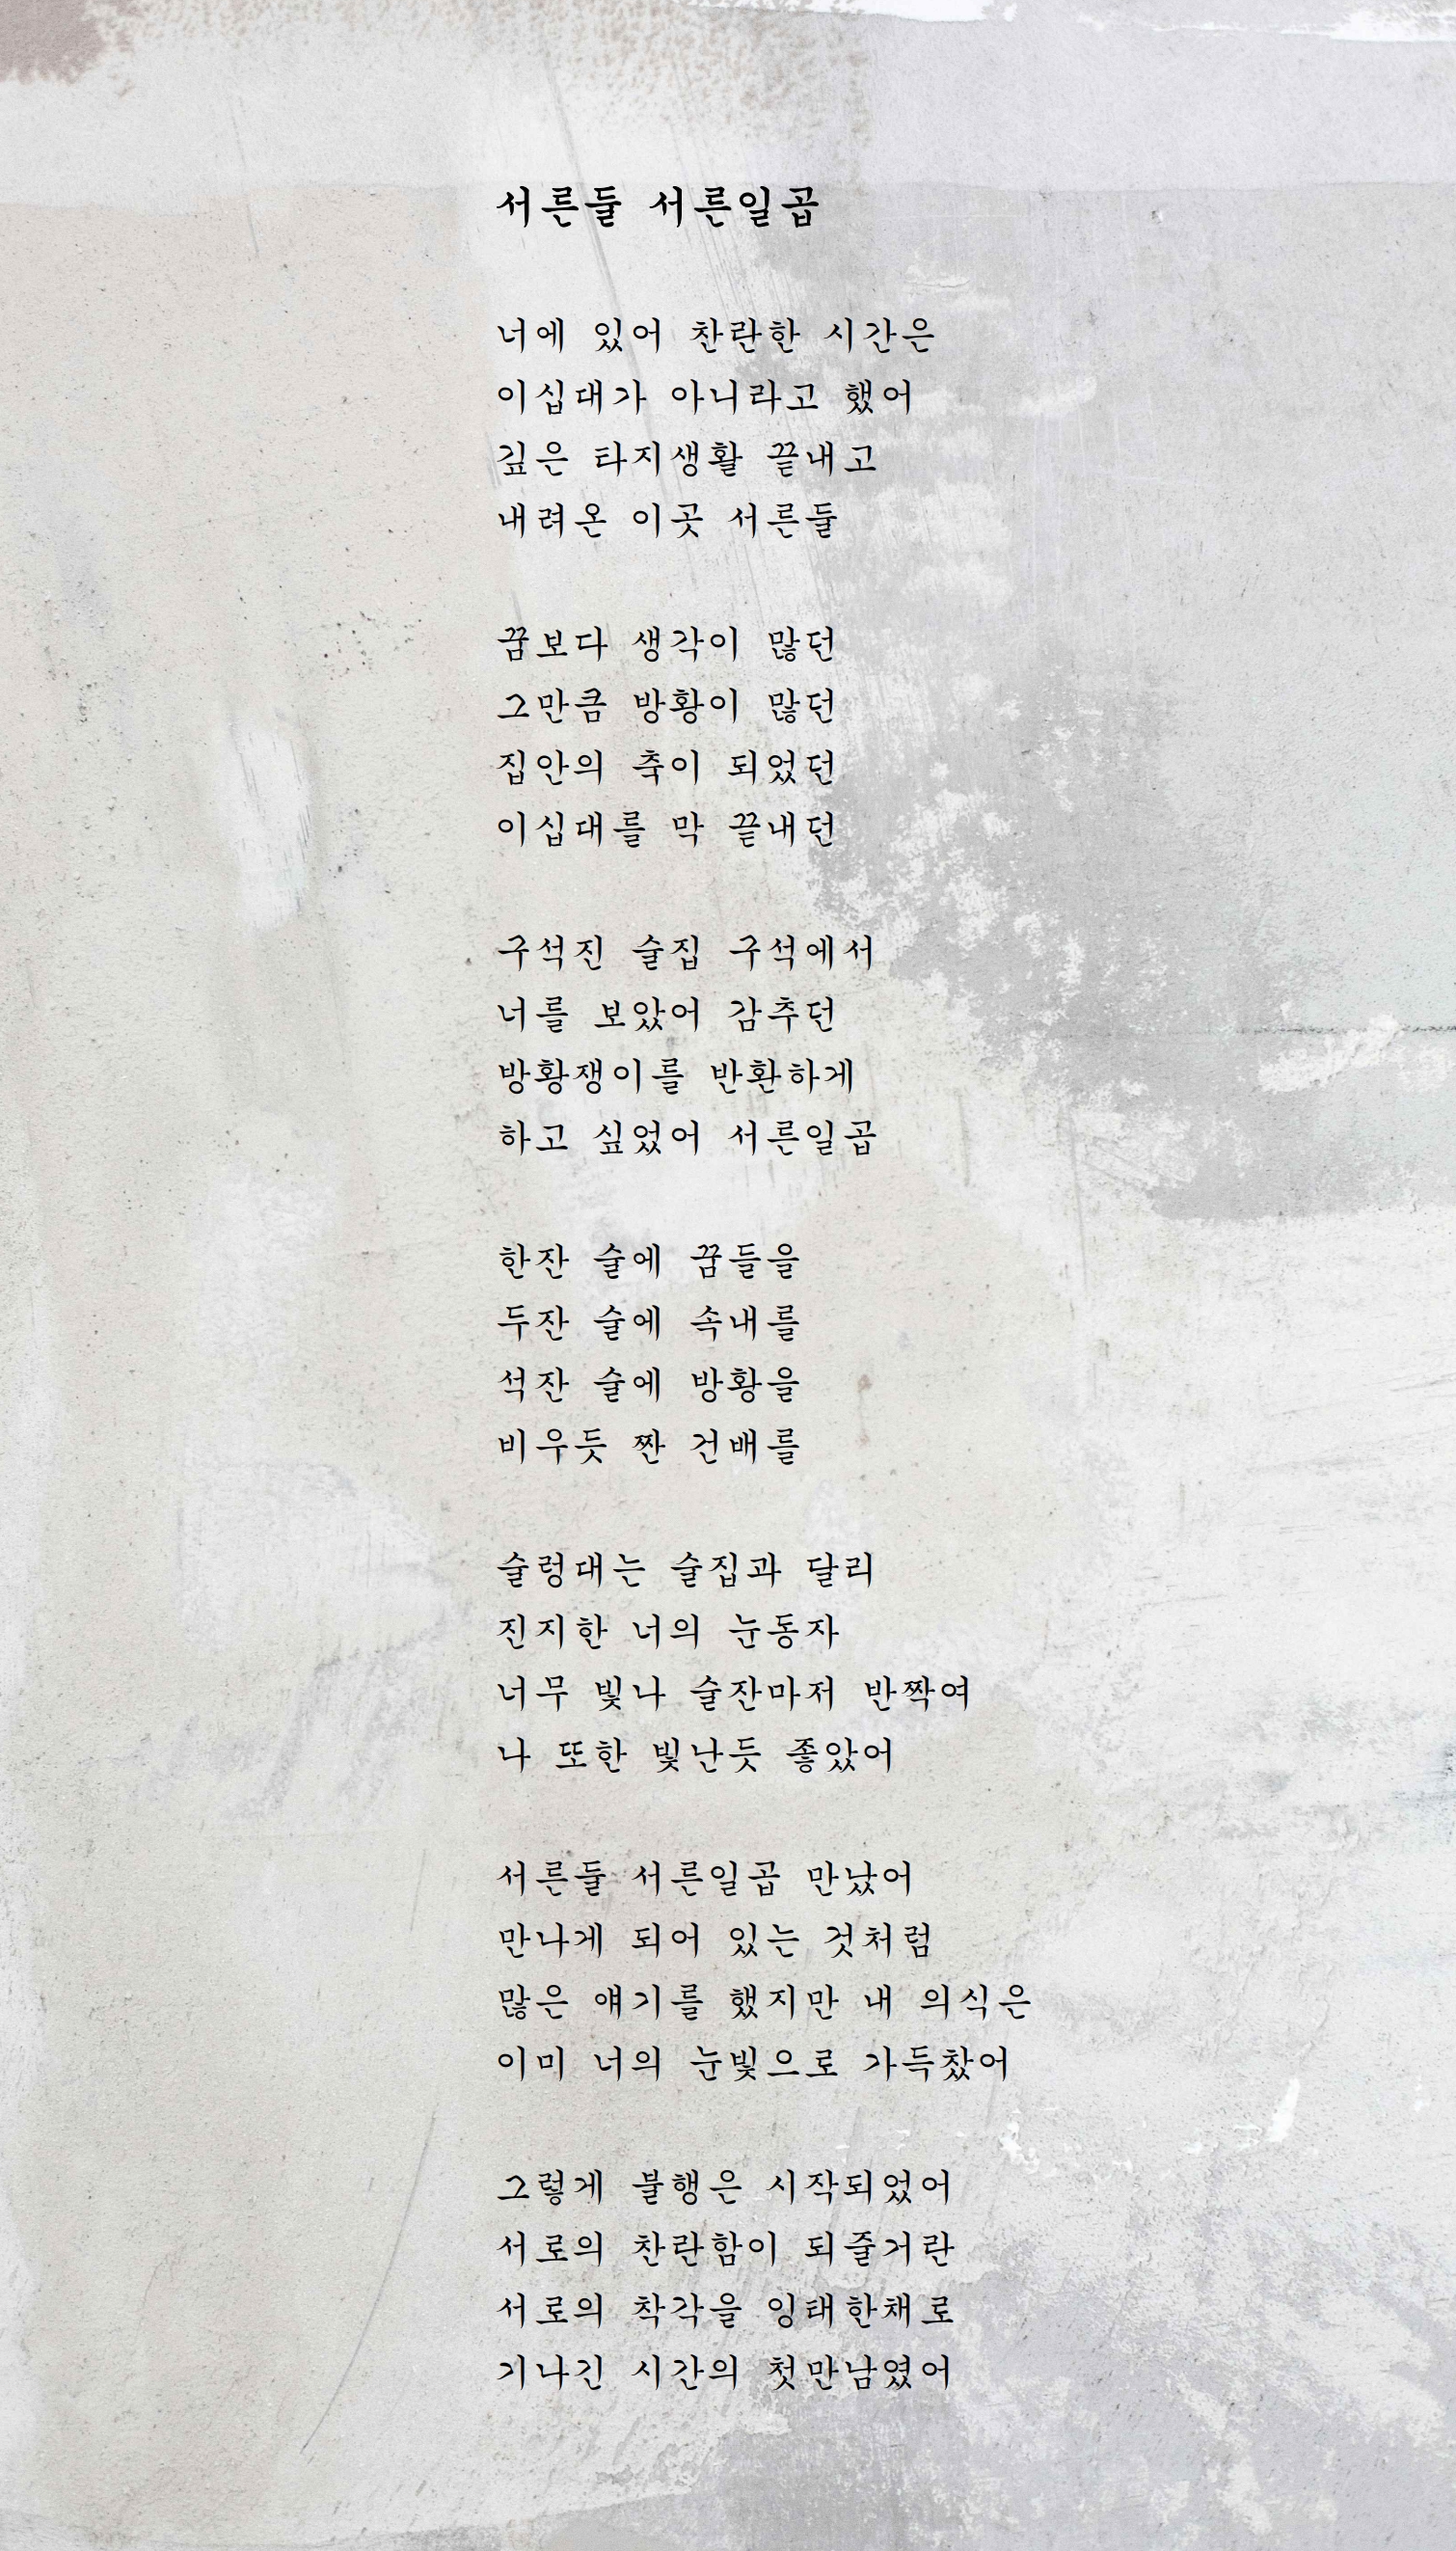 서른둘 서른일곱
너에 있어 찬란한 시간은
이십대가 아니라고 했어
깊은 타지생활 끝내고
내려온 이곳 서른둘
꿈보다 생각이 많던
그만큼 방황이 많던
집안의 축이 되었던
이십대를 막 끝내던
구석진 술집 구석에서
너를 보았어 감추던
방황쟁이를 반환하게
하고 싶었어 서른일곱
한잔 술에 꿈들을
두잔 술에 속내를
석잔 술에 방황을
비우듯 짠 건배를
술렁대는 술집과 달리
진지한 너의 눈동자
너무 빛나 술잔마저 반짝여
나 또한 빛난듯 좋았어
서른둘 서른일곱 만났어
만나게 되어 있는 것처럼
많은 얘기를 했지만 내 의식은
이미 너의 눈빛으로 가득찼어
그렇게 불행은 시작되었어
서로의 찬란함이 되줄거란
서로의 착각을 잉태한채로
기나긴 시간의 첫만남였어